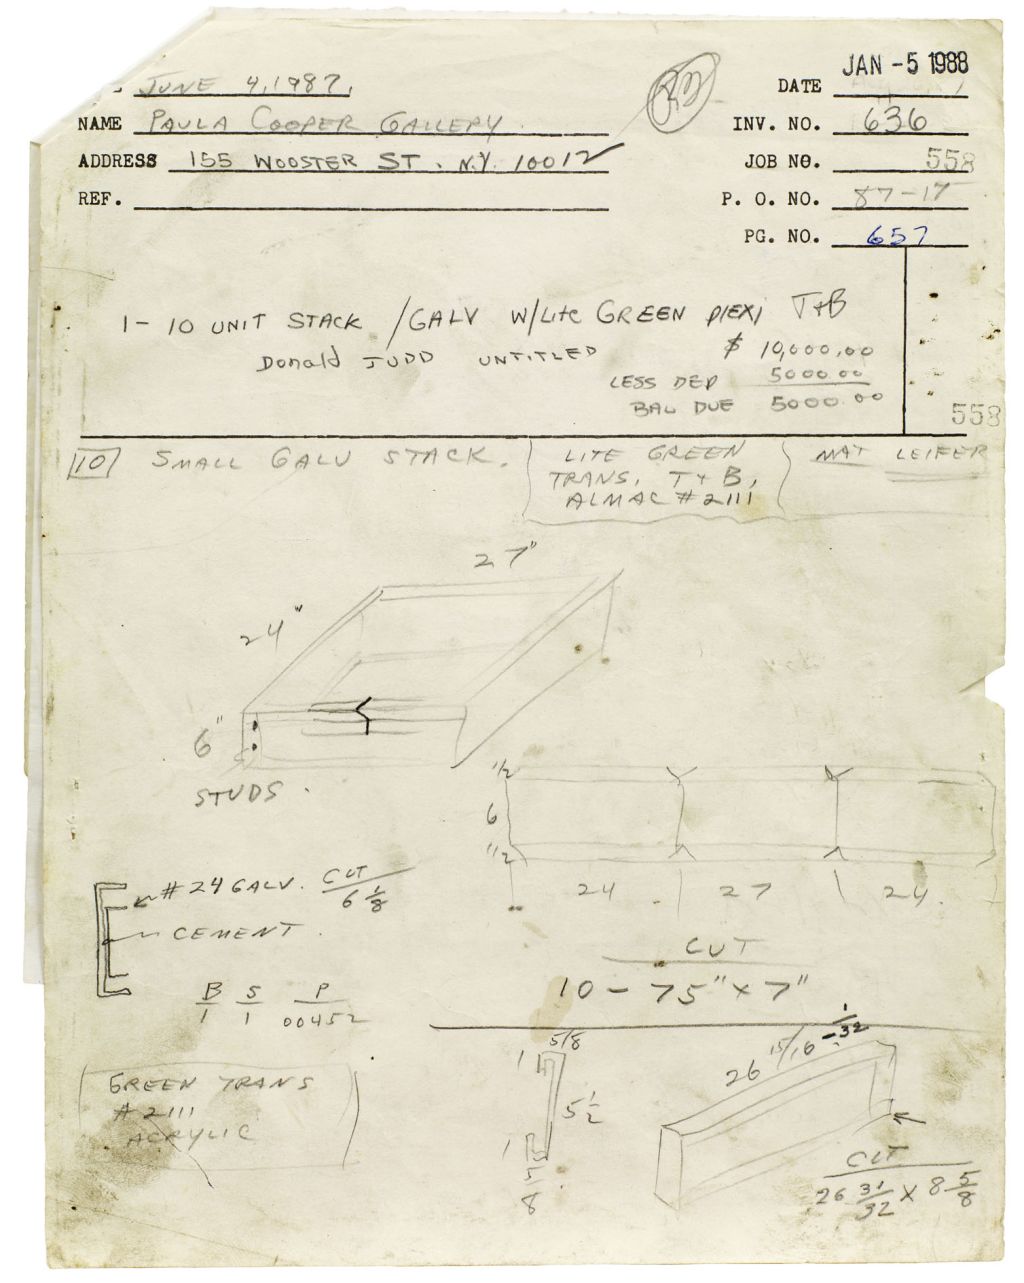 JUNE 4, 1987,
JAN -5 1988
DATE
NAME PAULA COOPER GALLERY
INV. NO. 636
ADDRESS 155 WOOSTER ST. N.Y. 10012
JOB NO. 558
REF.
P. O. NO. 87-17
PG. NO. 657
1- 10 UNIT STACK / GALV W/Lite GREEN plexi T&B
Donald JUDD UNTITLED
$ 10,000.00
LESS DEP 5000.00
BAL DUE 5000.00
558
10 SMALL GALV STACK.
LITE GREEN
TRANS, T & B,
ALMAC # 2111
MAT LEIFER
27"
24"
6"
STUDS.
1/2
6
1/2
24 27 24.
# 24 GALV. CUT
6 1/8
CEMENT
CUT
10 - 75" x 7"
B S P
1 1 00452
GREEN TRANS
# 2111
ACRYLIC
5/8
1
5 1/2
1
26 15/16 - 1/32
CUT
26 31/32 x 8 5/8